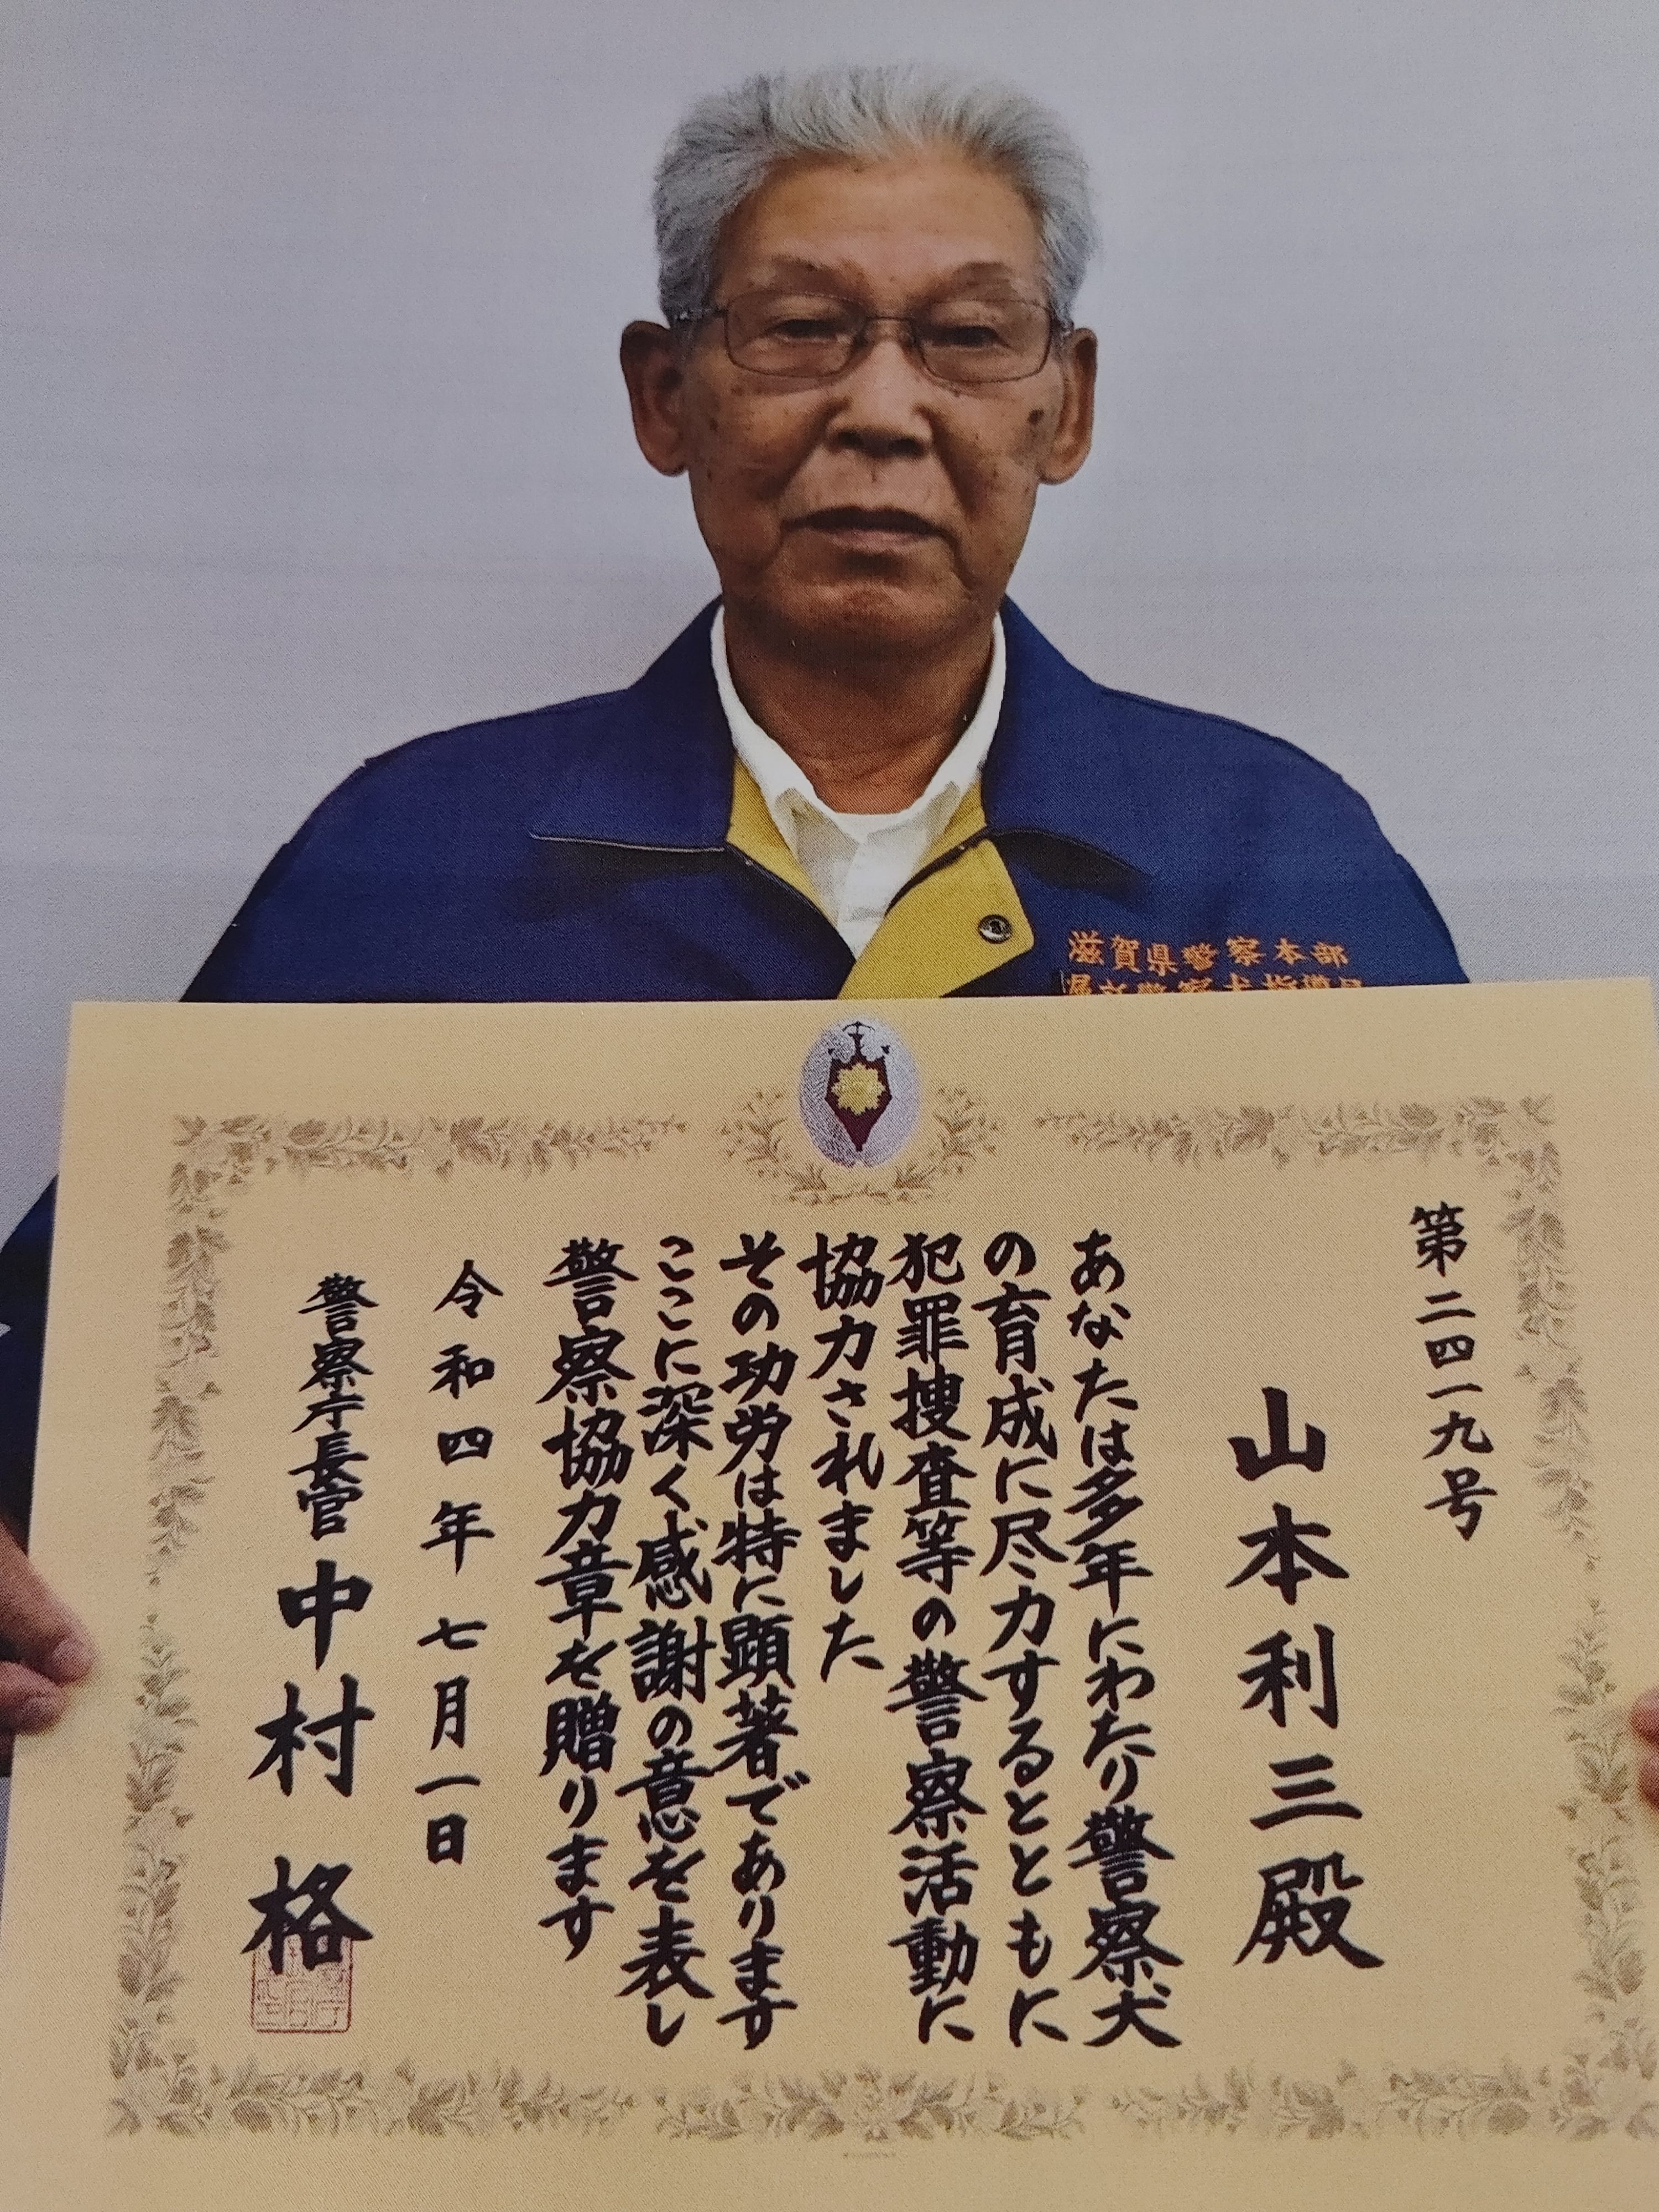 滋賀県警察本部
第二四一九号
山本利三殿
あなたは多年にわたり警察犬
の育成に尽力するとともに
犯罪捜査等の警察活動に
協力されました
その功労は特に顕著であります
ここに深く感謝の意を表し
警察協力章を贈ります
令和四年七月一日
警察庁長官 中村格